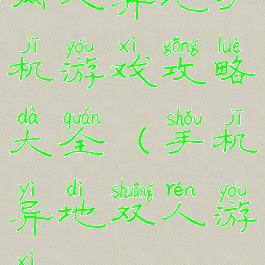 jī yóu xì gōng lüè
机游戏攻略
dà quán shǒu jī
大全（手机
yì dì shuāng rén yóu
异地双人游
xì